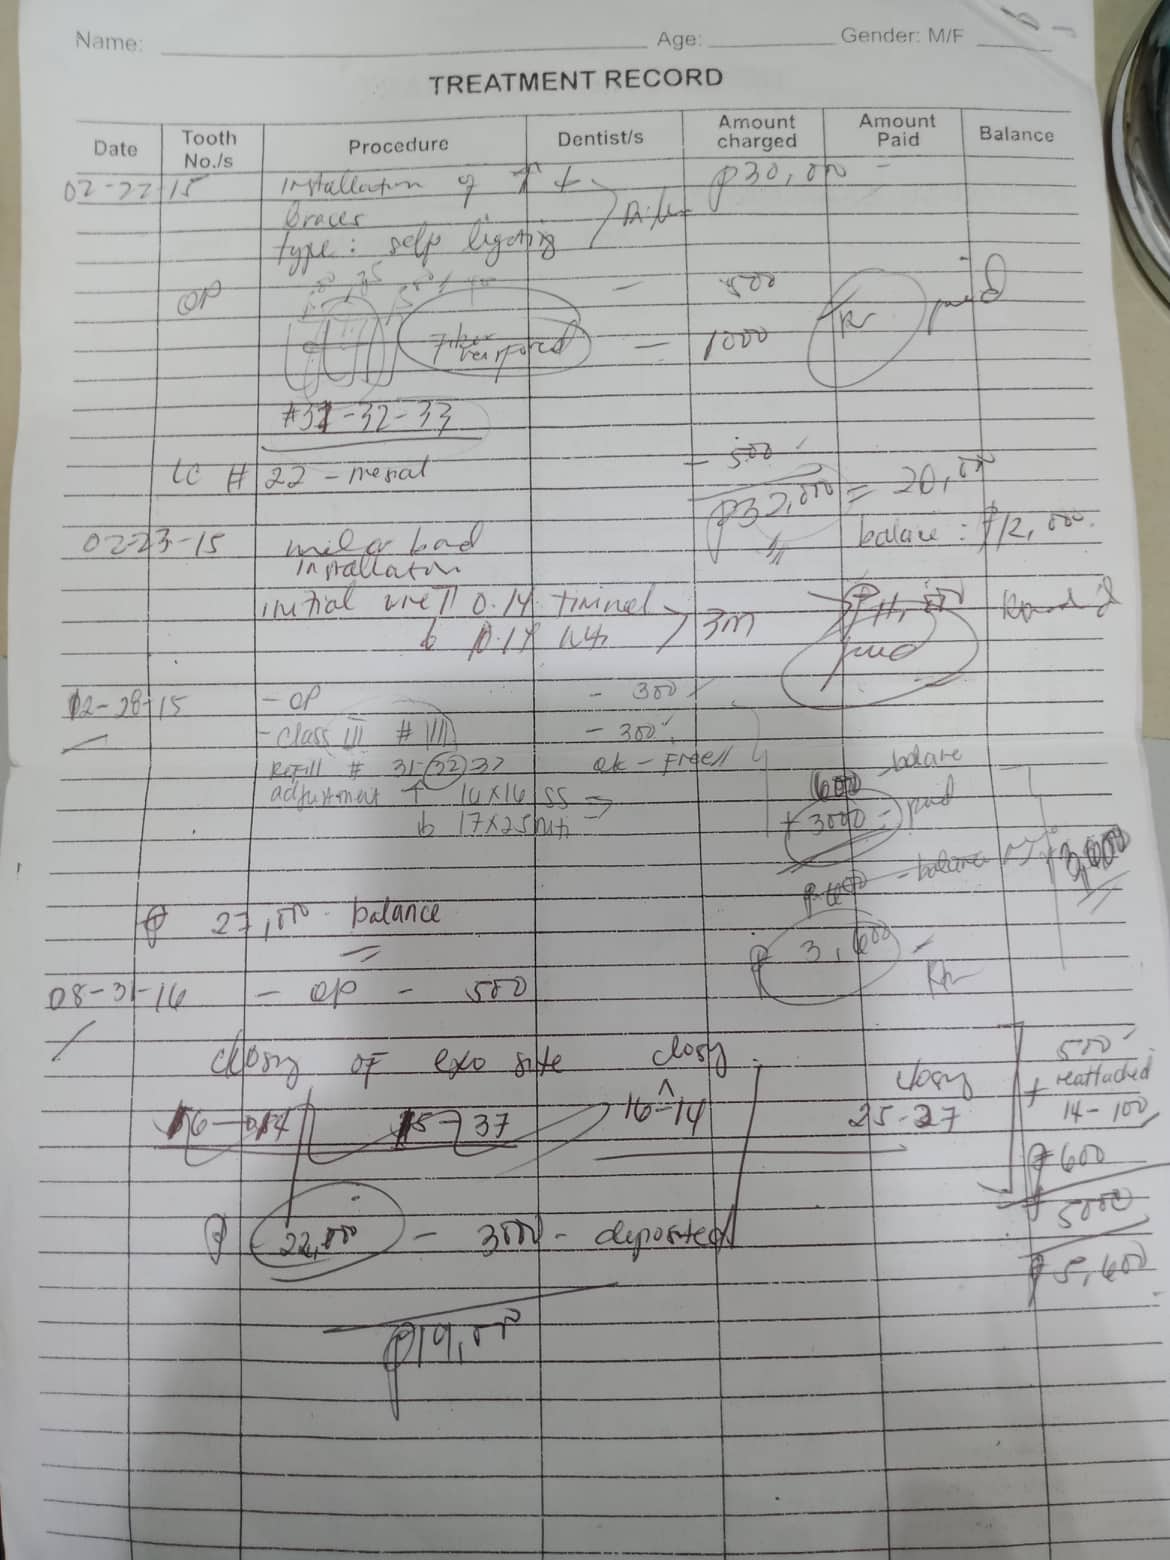 Name: Age: Gender: M/F
TREATMENT RECORD
Date Tooth No./s Procedure Dentist/s Amount charged Amount Paid Balance
02-22-15 Installation of ₱30,000
braces
type: self ligating
OP - 500 paid
Fiber reinforced - 1000
#31-32-33
LC # 22 - mesial - 500
₱32,000 = 20,000
02-23-15 molar band balance: ₱12,000.
installation
initial wire 0.14
paid
02-28-15 - OP - 300
- Class III # - 300
Refill # 31-(32)32 ok - Free
adjustment ↑ 16x16 ss 600 balance
17x25 niti + 3000 - paid
- balance 3,000
₱ 27,000 balance
₱ 3,600
08-31-16 - OP - 500
closing of exo site closing 500
closing + reattached
16-14 15-37 16-14 25-27 14-100
₱600
5000
₱ 22,000 - 3000 - deposited
₱5,600
₱19,000